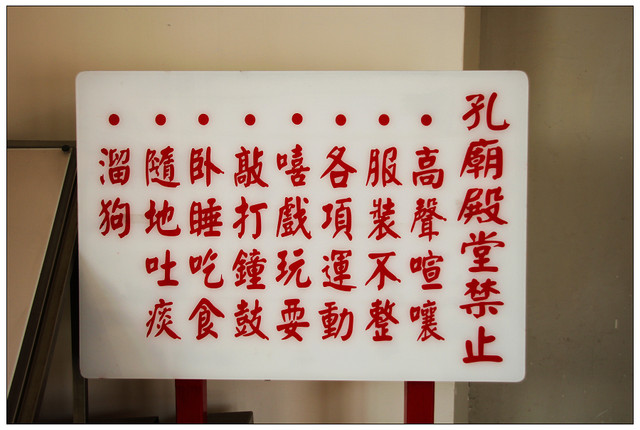 孔廟殿堂禁止
•高聲喧嚷
•服裝不整
•各項運動
•嘻戲玩耍
•敲打鐘鼓
•臥睡吃食
•隨地吐痰
•溜狗